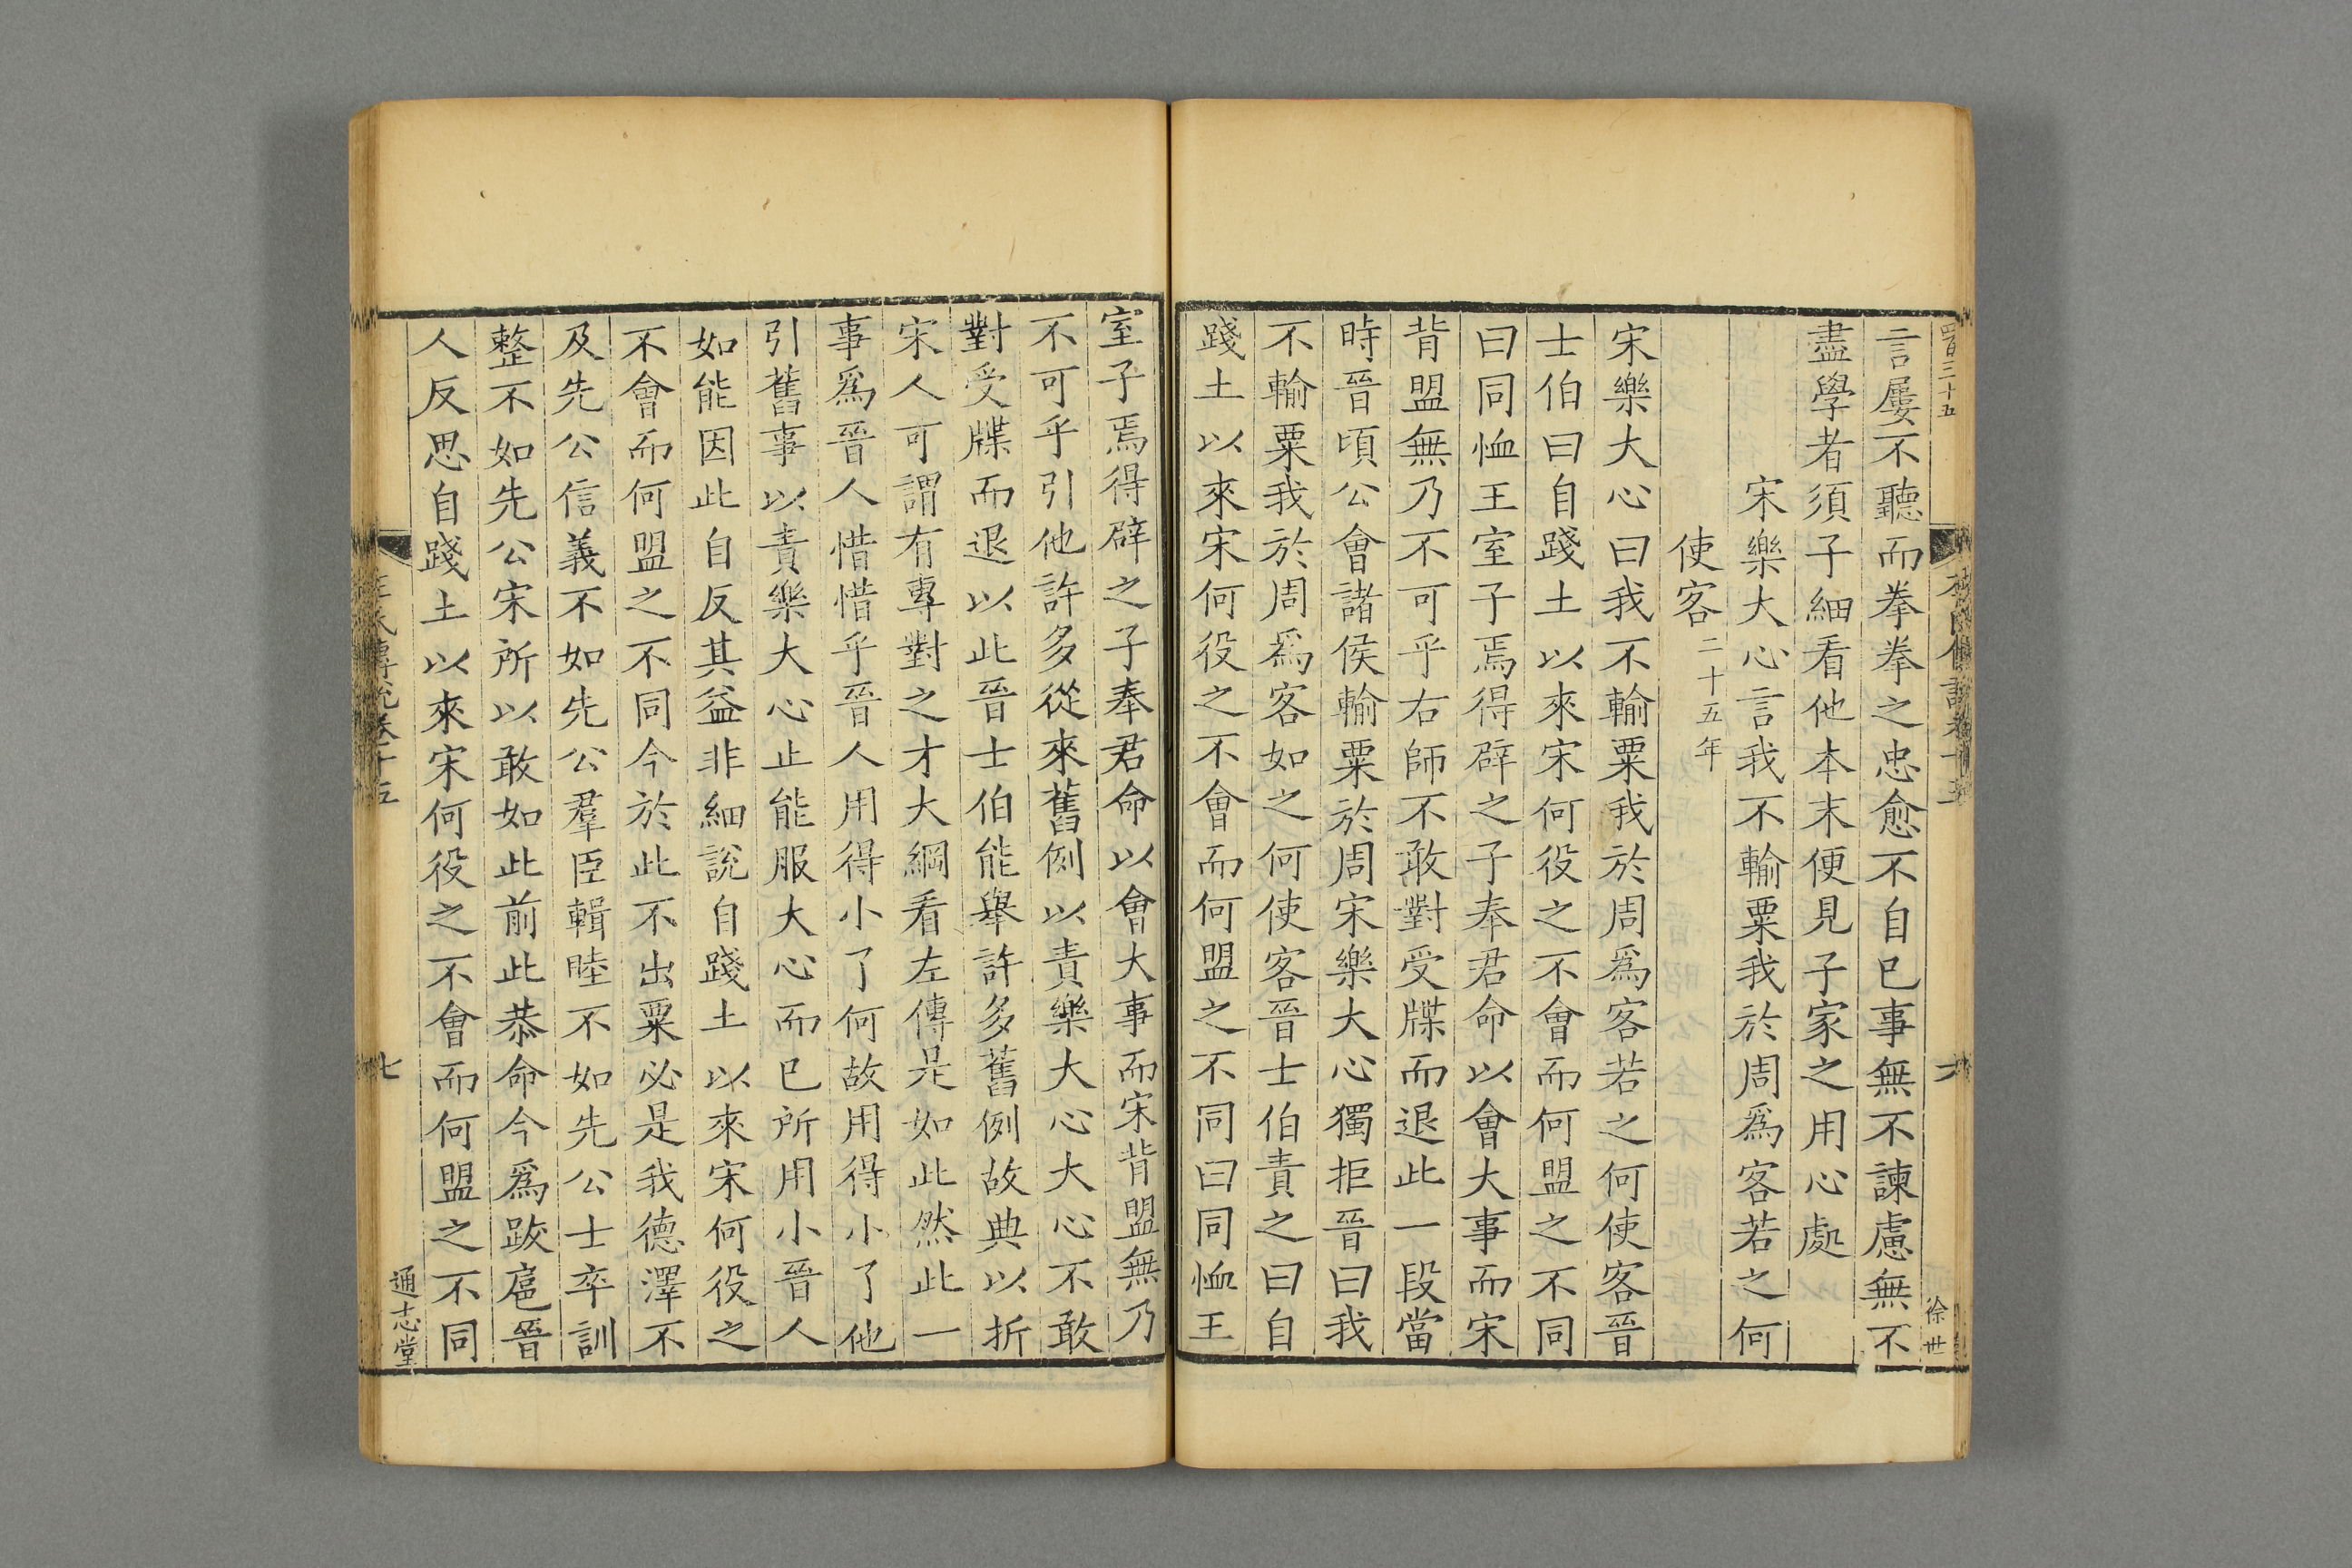 言屢不聽而拳拳之忠愈不自已事無不諫慮無不
盡學者須子細看他本末便見子家之用心處
宋樂大心言我不輸粟我於周爲客若之何
使客二十五年
宋樂大心曰我不輸粟我於周爲客若之何使客晉
士伯曰自踐土以來宋何役之不會而何盟之不同
曰同恤王室子焉得辟之子奉君命以會大事而宋
背盟無乃不可乎右師不敢對受牒而退此一段當
時晉頃公會諸侯輸粟於周宋樂大心獨拒晉曰我
不輸粟我於周爲客如之何使客晉士伯責之曰自
踐土以來宋何役之不會而何盟之不同曰同恤王
室子焉得辟之子奉君命以會大事而宋背盟無乃
不可乎引他許多從來舊例以責樂大心大心不敢
對受牒而退以此晉士伯能舉許多舊例故典以折
宋人可謂有專對之才大綱看左傳是如此然此一
事爲晉人惜惜乎晉人用得小了何故用得小了他
引舊事以責樂大心止能服大心而已所用小晉人
如能因此自反其益非細說自踐土以來宋何役之
不會而何盟之不同今於此不出粟必是我德澤不
及先公信義不如先公羣臣輯睦不如先公士卒訓
整不如先公宋所以敢如此前此恭命今爲跋扈晉
人反思自踐土以來宋何役之不會而何盟之不同
左氏傳說卷十五
七
通志堂